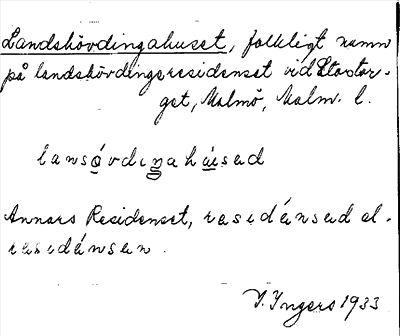 Landshövdingahuset, folkligt namn
på landshövdingeresidenset vid Stortor-
get, Malmö, Malm. l.
lansǫ́vdıŋahúsad
Annars Residenset, rasıdánsad el.
rasıdánsan.
I. Ingers 1933